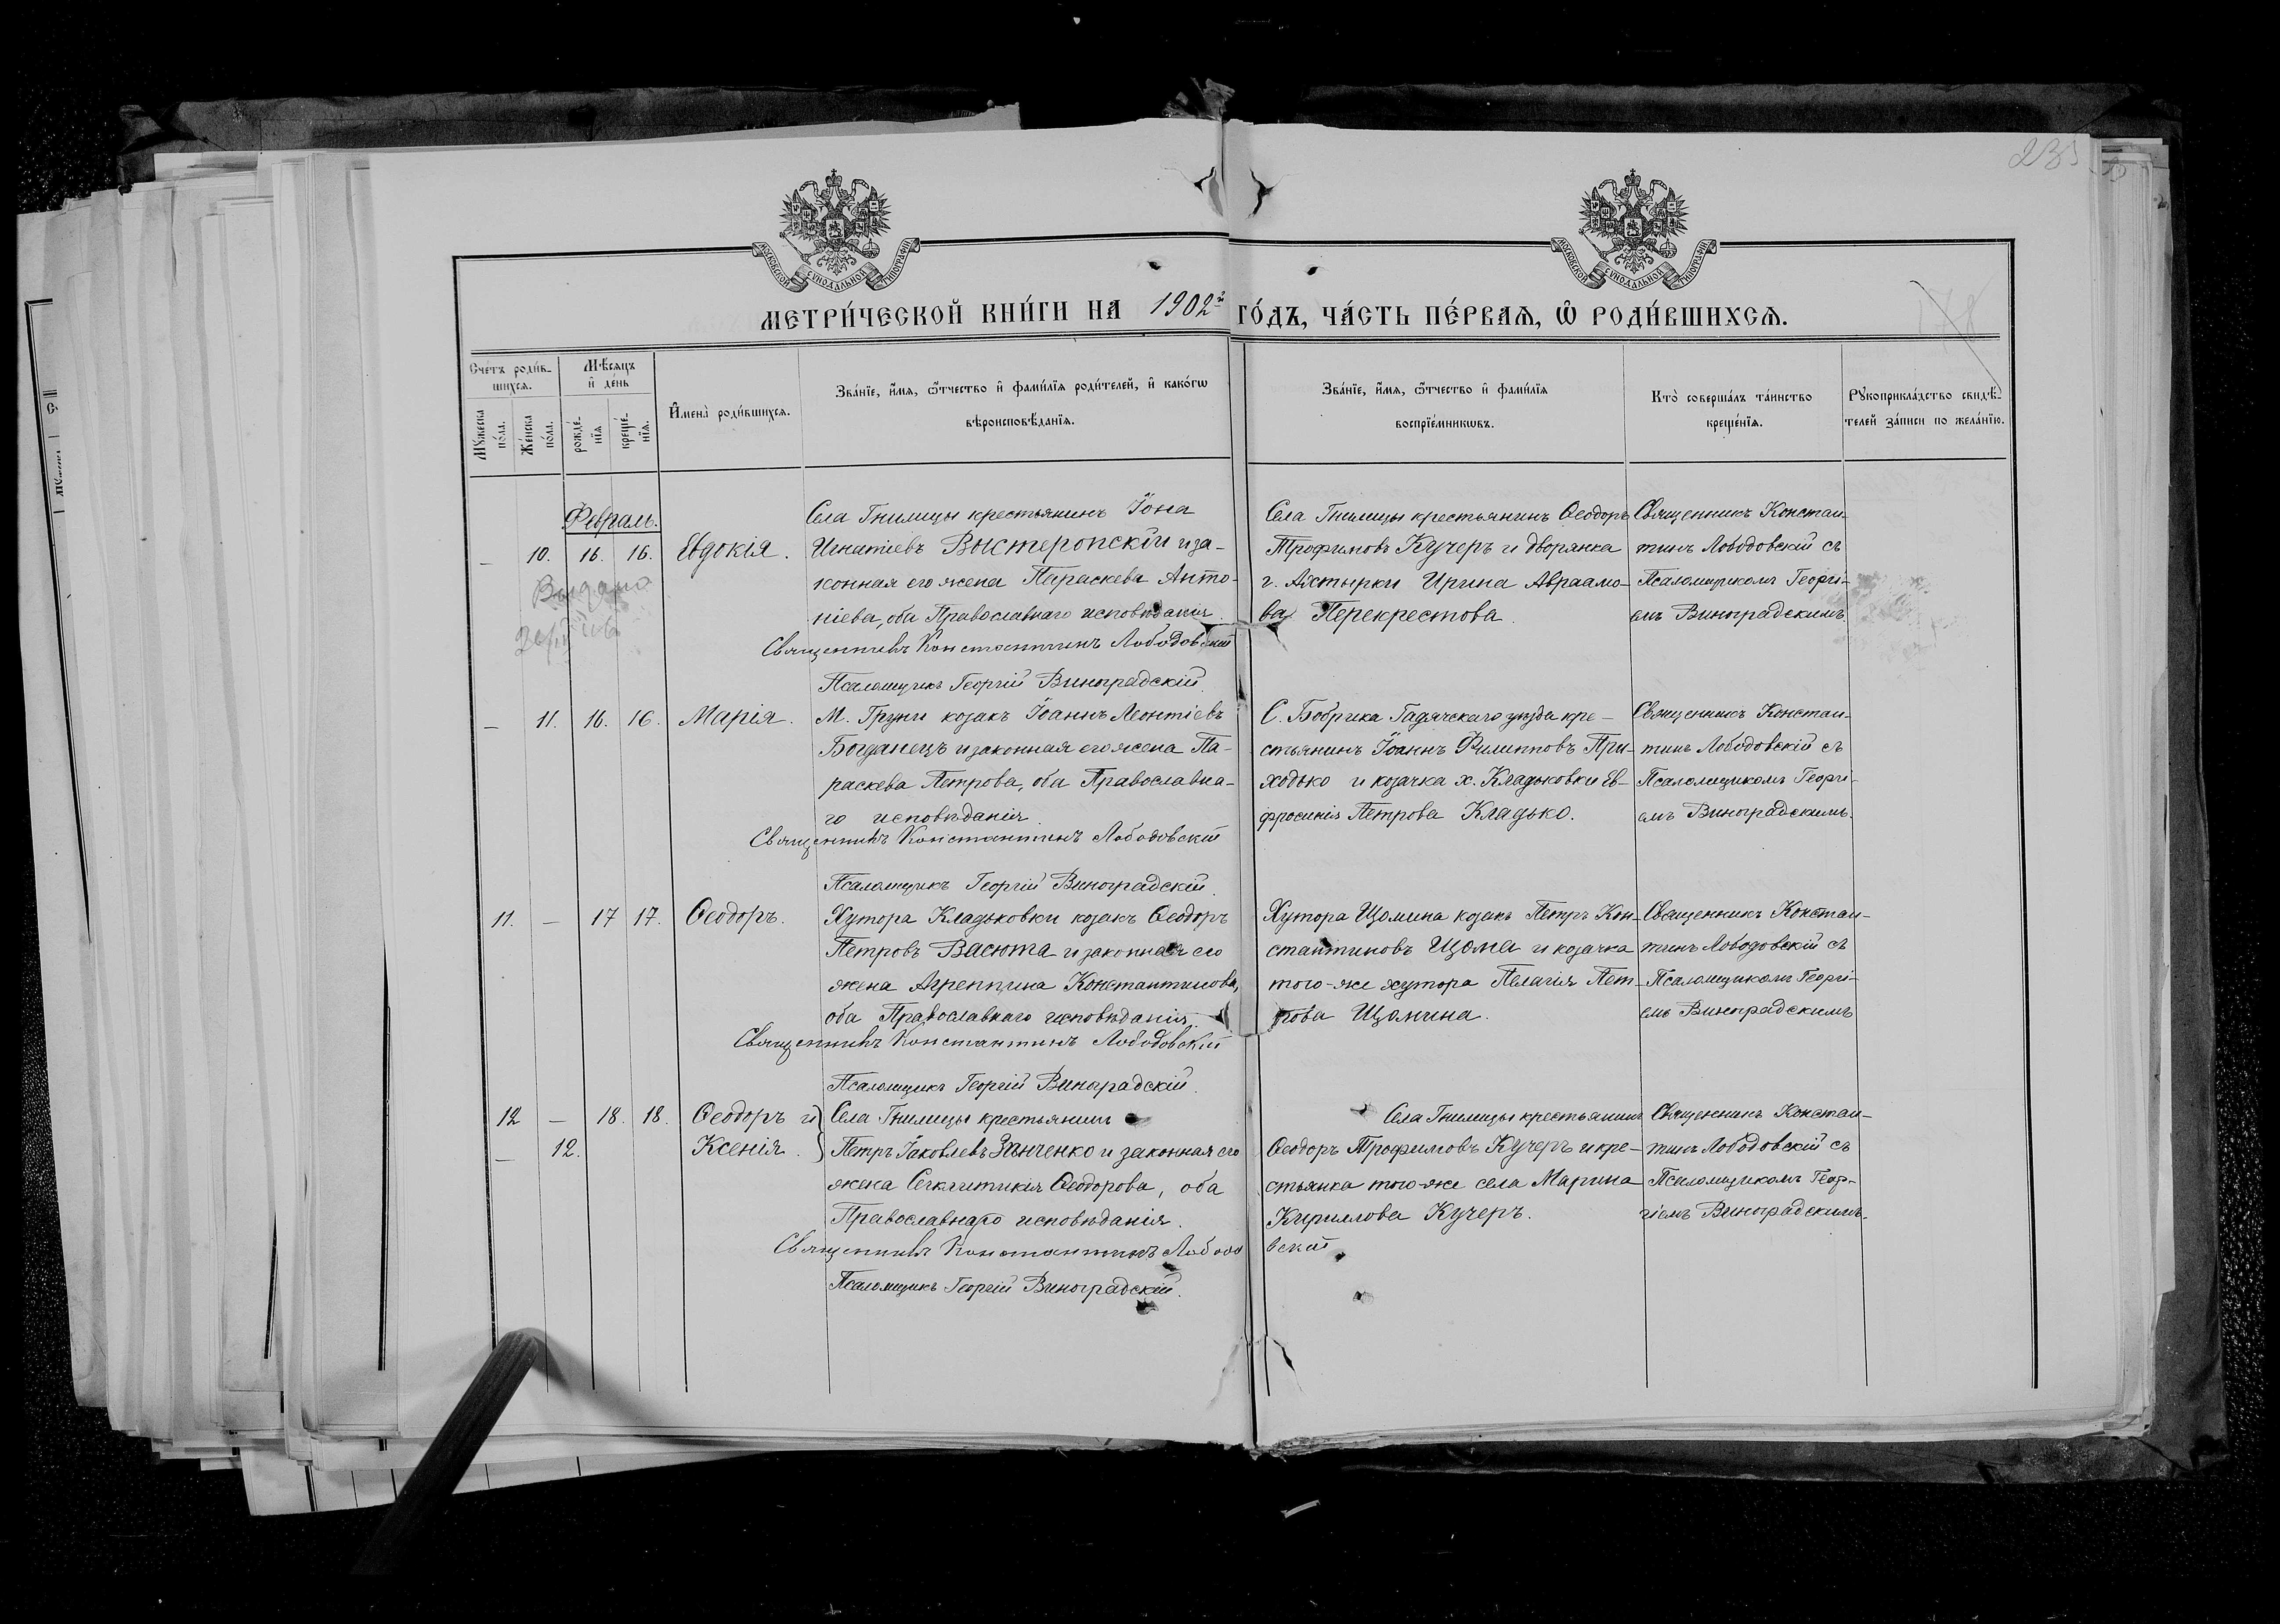 235
МОСКОВСКОЙ СѴНОДАЛЬНОЙ ТИПОГРАФІИ
МОСКОВСКОЙ СѴНОДАЛЬНОЙ ТИПОГРАФІИ
МЕТРИ́ЧЕСКОЙ КНИ́ГИ НА 1902 ГО́ДЪ, ЧА́СТЬ ПЕ́РВАѦ, Ѽ РОДИ́ВШИХСѦ.
Сче́тъ роди́в-
шихсѧ.
Мѣ́сѧцъ
и҆ де́нь
Мꙋ́жеска
по́ла.
Же́нска
по́ла.
рожде́-
нїѧ
креще́-
нїѧ.
И҆мена̀ роди́вшихсѧ.
Зва́нїе, и҆́мѧ, ѻ҆́тчество и҆ фами́лїѧ роди́телей, и҆ како́гѡ
вѣроисповѣ́данїѧ.
Зва́нїе, и҆́мѧ, ѻ҆́тчество и҆ фами́лїѧ
воспрїе́мникѡвъ.
Кто̀ соверша́лъ та́инство
креще́нїѧ.
Рꙋкоприкла́дство свидѣ́-
телей за́писи по жела́нїю.
Февраль.
— 10. 16. 16. Евдокія.
Села Гнилицы крестьянинъ Іона
Игнатіевъ Выстеропскій и за-
конная его жена Параскева Анто-
ніева, оба Православнаго исповѣданія.
Священникъ Константинъ Лободовскій
Псаломщикъ Георгій Виноградскій.
Села Гнилицы крестьянинъ Ѳеодоръ
Трофимовъ Кучеръ и дворянка
г. Ахтырки Ирина Авраамо-
ва Перекрестова.
Священникъ Констан-
тинъ Лободовскій съ
Псаломщикомъ Георгі-
емъ Виноградскимъ
Выдано
— 11. 16. 16. Марія.
М. Груни козакъ Іоаннъ Леонтіевъ
Богданецъ и законная его жена Па-
раскева Петрова, оба Православна-
го исповѣданія.
Священникъ Константинъ Лободовскій
Псаломщикъ Георгій Виноградскій.
С. Бобрика Гадячскаго уѣзда кре-
стьянинъ Іоаннъ Филипповъ При-
ходько и козачка х. Кладьковки Ев-
фросинія Петрова Кладько.
Священникъ Констан-
тинъ Лободовскій съ
Псаломщикомъ Георгі-
емъ Виноградскимъ.
11. — 17 17. Ѳеодоръ.
Хутора Кладьковки козакъ Ѳеодоръ
Петровъ Васюта и законная его
жена Агриппина Константинова,
оба Православнаго исповѣданія.
Священникъ Константинъ Лободовскій
Псаломщикъ Георгій Виноградскій.
Хутора Щомина козакъ Петръ Кон-
стантиновъ Щома и козачка
того-же хутора Пелагія Пет-
рова Щомина.
Священникъ Констан-
тинъ Лободовскій съ
Псаломщикомъ Георгі-
емъ Виноградскимъ
12 — 18. 18. Ѳеодоръ и
— 12. Ксенія.
Села Гнилицы крестьянинъ
Петръ Іаковлевъ Зѣнченко и законная его
жена Сигклитикія Ѳеодорова, оба
Православнаго исповѣданія.
Священникъ Константинъ Лободовскій
Псаломщикъ Георгій Виноградскій.
Села Гнилицы крестьянинъ
Ѳеодоръ Трофимовъ Кучеръ и кре-
стьянка того-же села Марина
Кириллова Кучеръ.
Священникъ Констан-
тинъ Лободовскій съ
Псаломщикомъ Геор-
гіемъ Виноградскимъ.